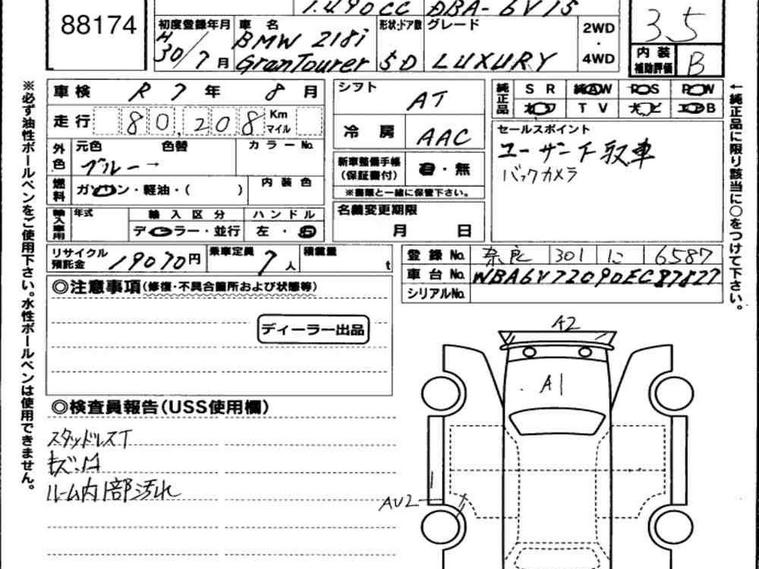 1.490CC DBA-6V15
88174
初度登録年月 車名 形状・ドア数 グレード 2WD・4WD
H30/7月 BMW 218i GranTourer 5D LUXURY
3.5
内装補助評価 B
車検 R7年8月
走行 80,208 Km マイル
外色 元色 色替 カラーNo.
ブルー→
燃料 ガソリン・軽油・( ) 内装色
輸入車用 年式 輸入区分 ハンドル
ディーラー・並行 左・右
リサイクル預託金 19070円 乗車定員 7人 積載量 t
シフト AT
冷房 AAC
新車整備手帳(保証書付) 有・無
※書類と一緒に保管下さい。
名義変更期限
月 日
純正品 SR 純AW PS PW
ナビ TV カワ エアB
セールスポイント
ユーザー下取車
バックカメラ
登録No. 奈良 301 に 6587
車台No. WBA6V72090EC87827
シリアルNo.
◎注意事項(修復・不具合箇所および状態等)
ディーラー出品
◎検査員報告(USS使用欄)
スタッドレスT
キズ・凹
ルーム内1部汚れ
A2
A1
AU2
※必ず油性ボールペンをご使用下さい。水性ボールペンは使用できません。
←純正品に限り該当に○をつけて下さい。